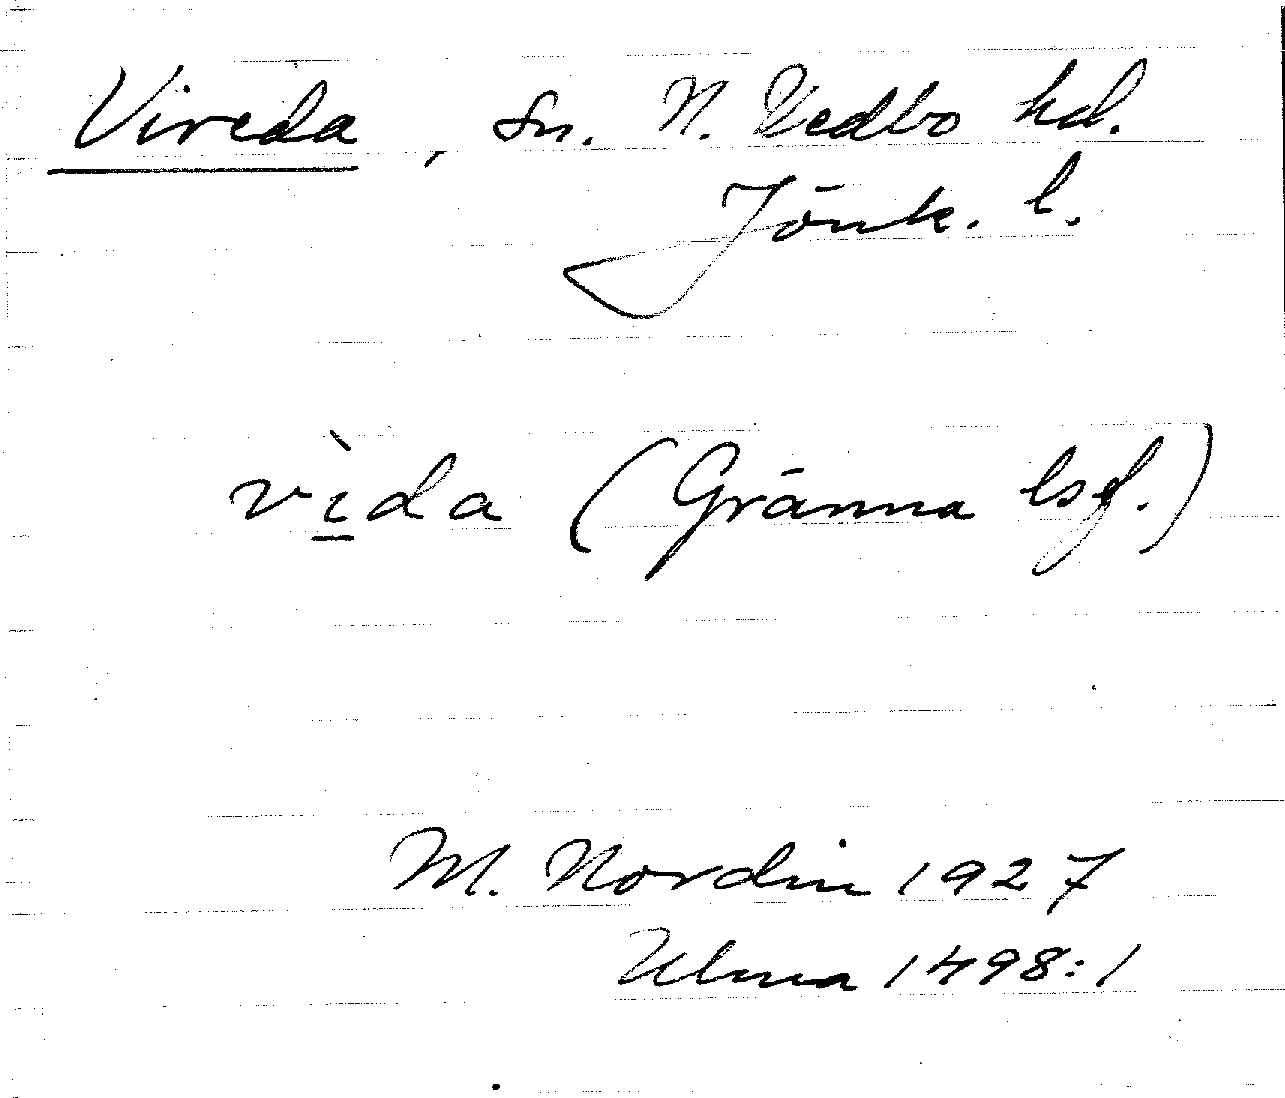 Vireda, sn. N. Vedbo hd.
Jönk. l.
vı̱̀da (Gränna lsf.)
M. Nordin 1927
Ulma 1498:1